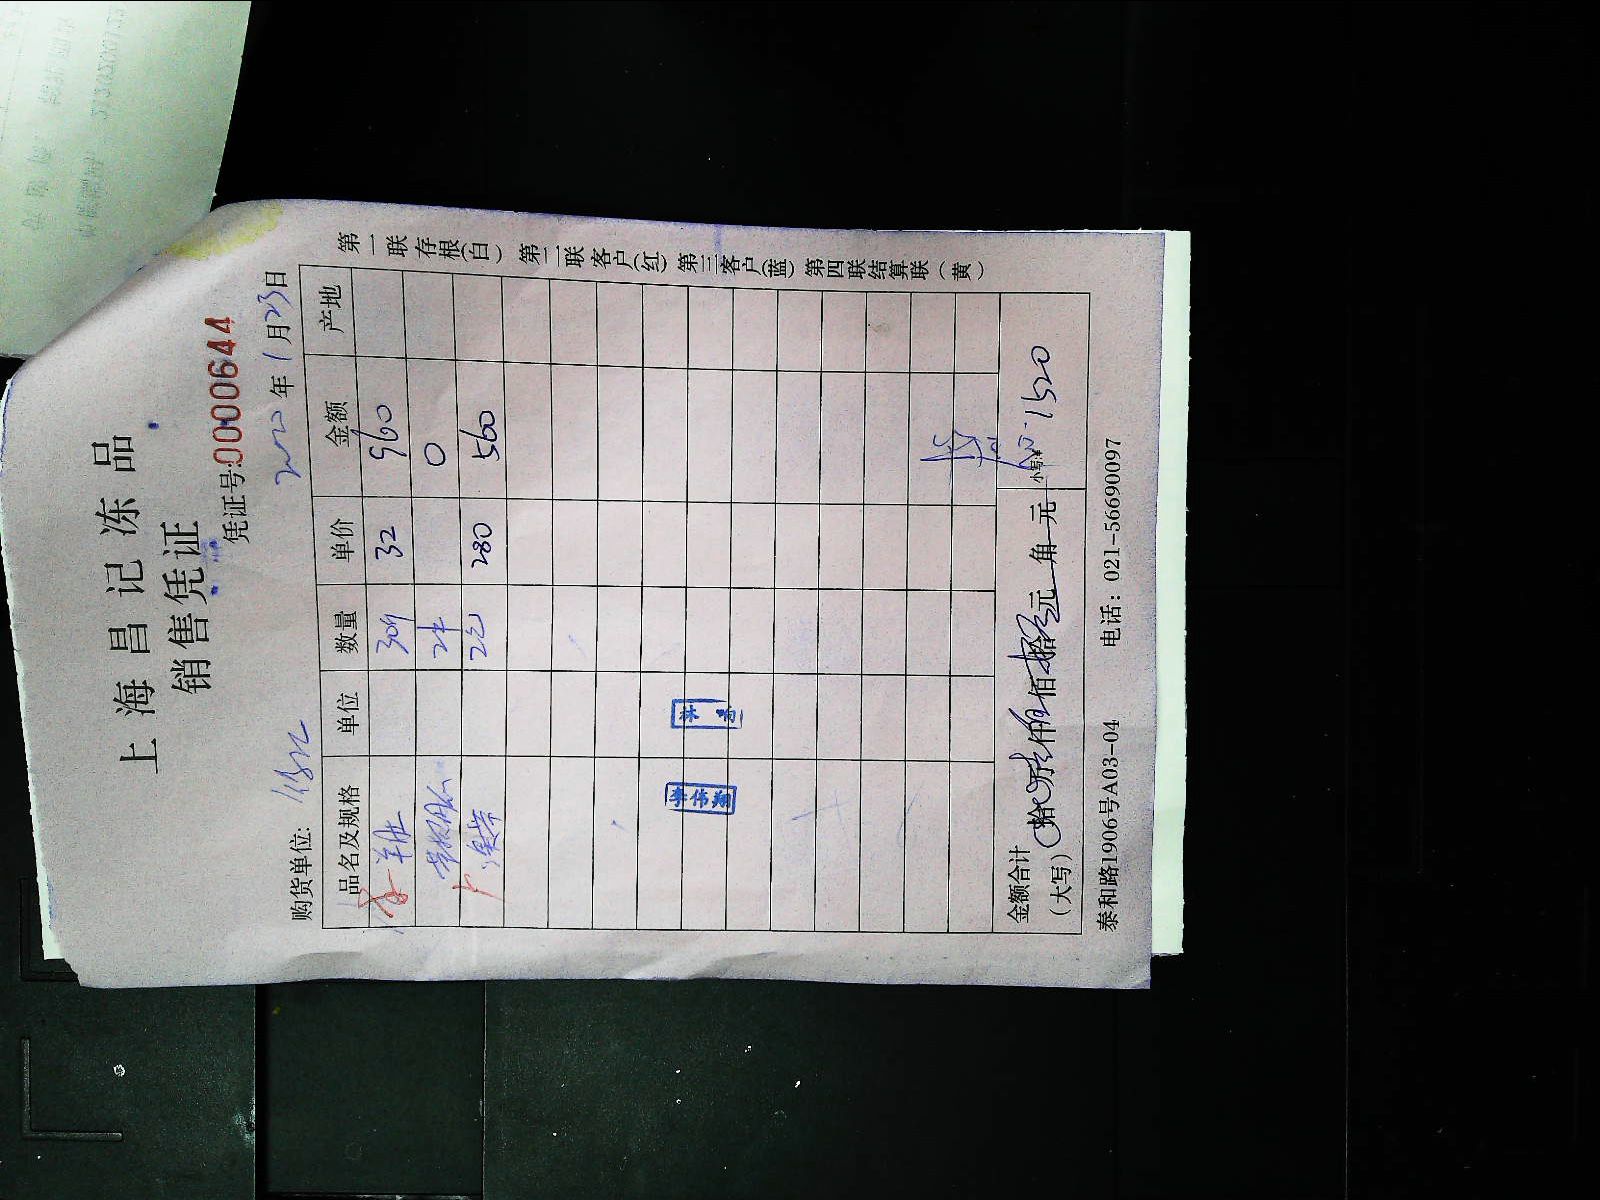 上海昌记冻品
销售凭证
凭证号:0000644
购货单位:
2022年1月23日
品名及规格 单位 数量 单价 金额 产地
羊肚 30斤 32 960
0
2 280 560
李伟翔
金额合计
(大写) 拾 万 仟 佰 拾 元 角 元 小写:¥ 1520
泰和路1906号A03-04 电话:021-56690097
第一联存根(白) 第二联客户(红) 第三客户(蓝) 第四联结算联(黄)